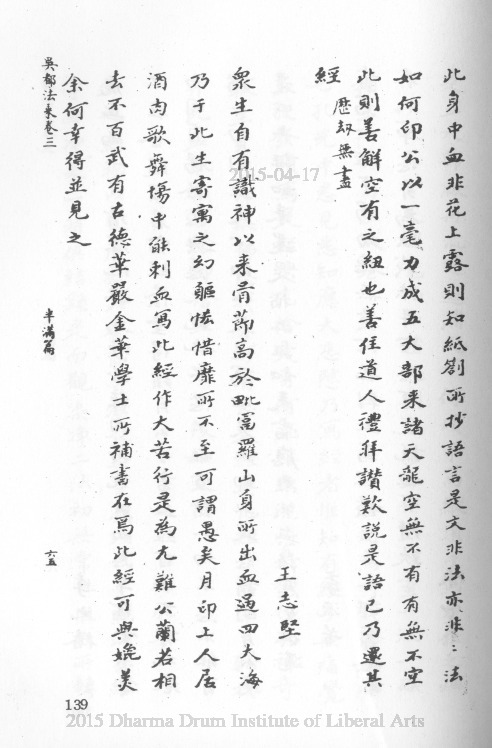 此身中血非花上露則知紙劄所抄語言是文非法亦非〻法
如何印公以一毫力成五大部來諸天龍空無不有有無不空
此則善解空有之紐也善住道人禮拜讚歎說是語已乃還其
經 歷刼無盡
王志堅
衆生自有識神以來骨節高於毗富羅山身所出血過四大海
乃于此生寄寓之幻軀恡惜靡所不至可謂愚矣月印上人居
酒肉歌舞場中能刺血寫此經作大苦行是為尤難公蘭若相
去不百武有古德華嚴金華學士所補書在焉此經可與媲美
余何幸得並見之
吳都法乘卷三
半滿篇
六五
139
2015-04-17
2015 Dharma Drum Institute of Liberal Arts